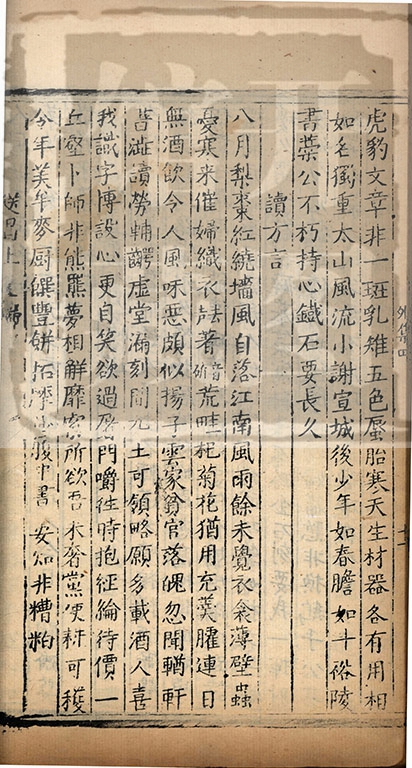 虎豹文章非一斑乳雉五色蜃胎寒天生材器各有用相
如名獨重太山風流小謝宣城後少年如春膽如斗裕陵
書藁公不朽持心鐵石要長久
讀方言
八月梨棗紅繞墻風自落江南風雨餘未覺衣衾薄壁蟲
憂寒來催婦織衣荒畦杞菊花猶用充羮臛連日
無酒飲令人風味惡頗似揚子雲家翁官落魄忽聞輶軒
苦澁讀勞輔齶虛堂漏刻間九土可領略願多載酒人喜
我識字博設心更自笑欲過屠門嚼往時抱經綸待價一
丘壑卜師非熊羆夢相解靡索所欲吾未奢黨使耕可穫
今年美牟麥厨饌豐餅拓摩挲腹中書安知非糟粕